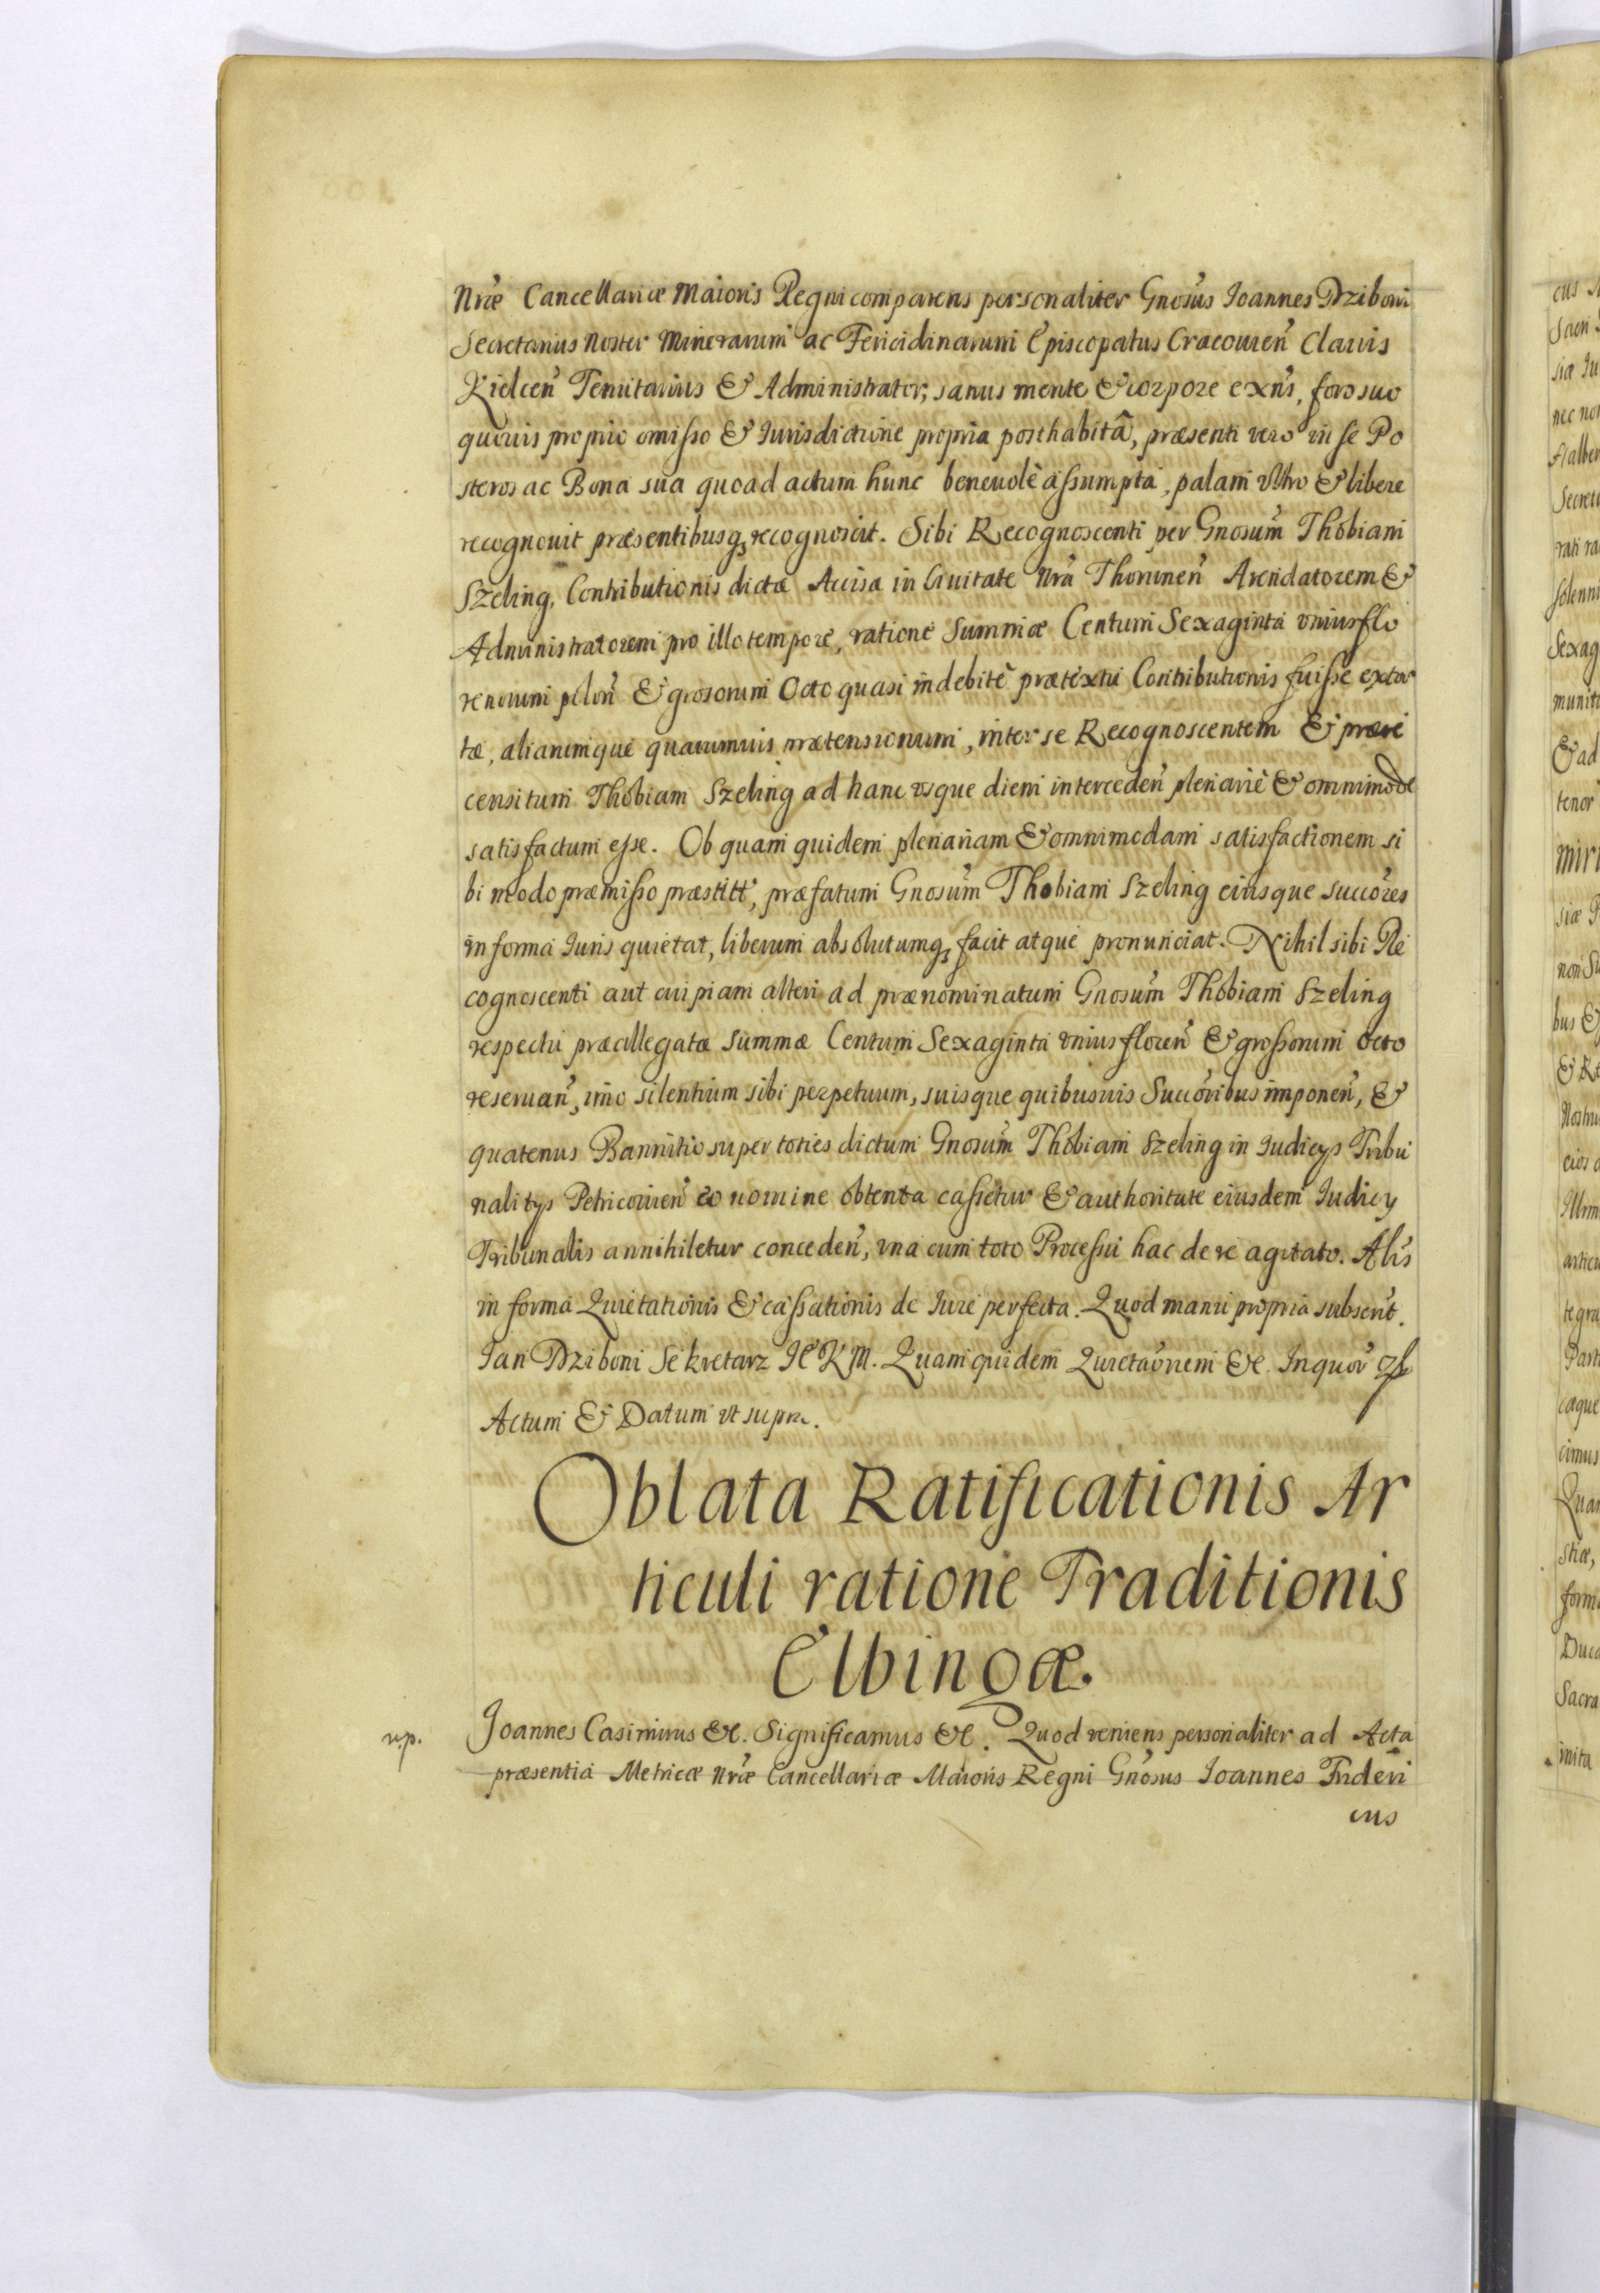 Nr̃æ Cancellariæ Maioris Regni comparens personaliter Gnosus Ioannes Dziboni
Secretarius Noster Minerarum ac Fericidinarum Episcopatus Cracouien̄ Clauis
Kielcen̄ Tenutarius & Administrator, sanus mente & corpore exn̄s, foro suo
quouis proprio omisso & Iurisdictione propria posthabitâ, præsenti vero in se Po
steros ac Bona sua quoad actum hunc beneuolè assumpta, palam vltro & libere
recognouit præsentibusq̨ recognoscit. Sibi Recognoscenti per Gnosum Thobiam
Szeling, Contributionis dictæ Accisa in Ciuitate Nrã Thorunen̄ Arendatorem &
Administratorem pro illo tempore, ratione Summæ Centum Sexaginta vnius flo
renorum polon̄ & grosorum Octo quasi indebitè prætextu Contributionis fuisse extor
tæ, aliarumque quarumuis prætensionum, inter se Recognoscentem & prære
censitum Thobiam Szeling ad hanc vsque diem interceden̄ plenariè & omnimodè
satisfactum esse. Ob quam quidem plenariam & omnimodam satisfactionem si
bi modo præmisso præstitt, præfatum Gnosum Thobiam Szeling eiusque succores
in forma Iuris quietat, liberum absolutumq̨ facit atque pronunciat. Nihil sibi Re
cognoscenti aut cuipiam alteri ad prænominatum Gnosum Thobiam Szeling
respectu præallegatæ Summæ Centum Sexaginta vnius floren̄ & grossorum Octo
reseruan̄, imo silentium sibi perpetuum, suisque quibusuis Succoribus imponen̄, &
quatenus Bannitio super toties dictum Gnosum Thobiam Szeling in Iudicys Tribu
nalitys Petricouien̄ eo nomine obtenta cassetur & authoritate eiusdem Iudicy
Tribunalis annihiletur conceden̄, vna cum toto Processu hac de re agitato. Alis
in forma Quietationis & cassationis de Iure perfecta. Quod manu propria subscrit.
Ian Dziboni Sekretarz IE K M. Quam quidem Quietaõnem &c. In quor
Actum & Datum vt supra.
Oblata Ratificationis Ar
ticuli ratione Traditionis
Elbingæ.
np. Joannes Casimirus &c. Significamus &c. Quod veniens personaliter ad Acta
præsentia Metricæ Nr̃æ Cancellariæ Maioris Regni Gnosus Ioannes Frideri
cus